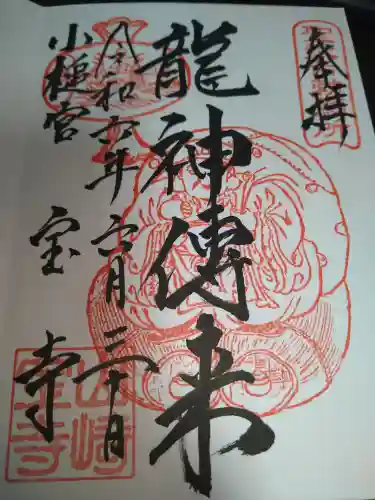 奉拝
龍神傳来
令和六年六月三十日
小槌宮
宝寺
山崎
宝寺